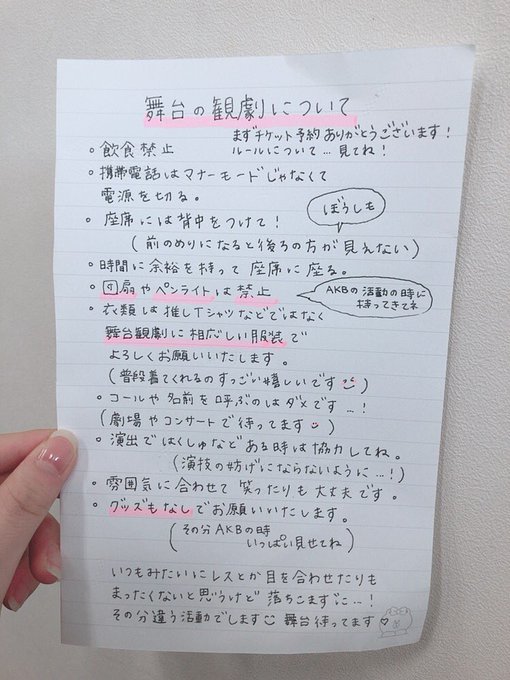 舞台の観劇について
まずチケット予約ありがとうございます!
ルールについて…見てね!
。飲食禁止
。携帯電話はマナーモードじゃなくて
電源を切る。
。座席には背中をつけて!
ぼうしも
(前のめりになると後ろの方が見えない)
。時間に余裕を持って座席に座る。
。団扇やペンライトは禁止
AKBの活動の時に
持ってきてネ
。衣類は推しTシャツなどではなく
舞台観劇に相応しい服装で
よろしくお願いいたします。
(普段着てくれるのすっごい嬉しいです)
。コールや名前を呼ぶのはダメです…!
(劇場やコンサートで待ってます)
。演出ではくしゅなどある時は協力してね。
(演技の妨げにならないように…!)
。雰囲気に合わせて笑ったりも大丈夫です。
。グッズもなしでお願いいたします。
(その分AKBの時
いっぱい見せてね)
いつもみたいにレスとか目を合わせたりも
まったくないと思うけど落ちこまずに…!
その分違う活動でします 舞台待ってます♡